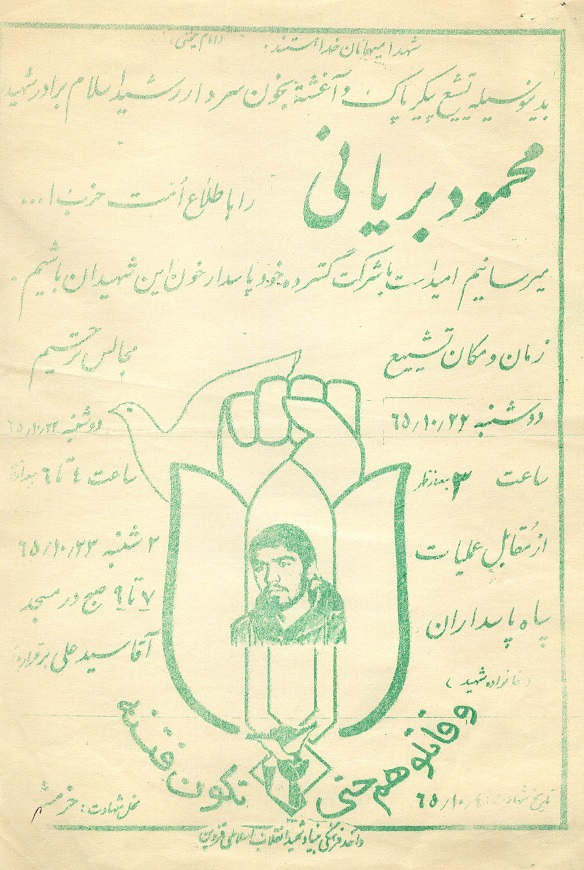 شهدا میهمانان خدا هستند. (امام خمینی)
بدینوسیله تشیع پیکر پاک و آغشته بخون سردار رشید اسلام برادر شهید
محمود بریانی
را با طلاع اُمّت حزب ا...
میرسانیم امیدارست با شرکت گسترده خود پاسدار خون این شهیدان باشیم.
زمان و مکان تشییع
دوشنبه ۶۵/۱۰/۲۲
ساعت ۳ بعدازظهر
از مقابل عملیات
سپاه پاسداران
(خانواده شهید)
مجالس ترحیم
دوشنبه ۶۵/۱۰/۲۲
ساعت ٤ تا ٦
۳ شنبه ۶۵/۱۰/۲۳
۷ تا ۹ صبح در مسجد
آقا سید علی
و قاتلو هم حتی
تکون فتنه
تاریخ شهادت: ۶۵/۱۰/
محل شهادت: خرمشهر
واحد فرهنگی بنیاد شهید انقلاب اسلامی قزوین